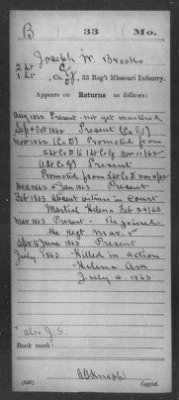 B 33 Mo.
Joseph W. Brooks
2 Lt
1 Lt, Co. G, 33 Reg't Missouri Infantry.
Appears on
Returns as follows:
Aug 1862 Present - not yet mustered
Sept & Oct 1862 Present (Co G)
Nov 1862 (Co D) Promoted from
2d Lt Co D to 1 Lt Co G Nov 11/62
(Co G) Present
Promoted from 2d Lt Co D Nov 11/62
Dec 1862 & Jan 1863 Present
Feb 1863 Absent witness in Court
Martial Helena Feb 24/63
Mar 1863 Present - Re joined
the Regt Mar. 1st
Apr to June 1863 Present
July 1863 Killed in action
Helena Ark
July 4 1863
* also J.S.
Book mark:
Copyist.